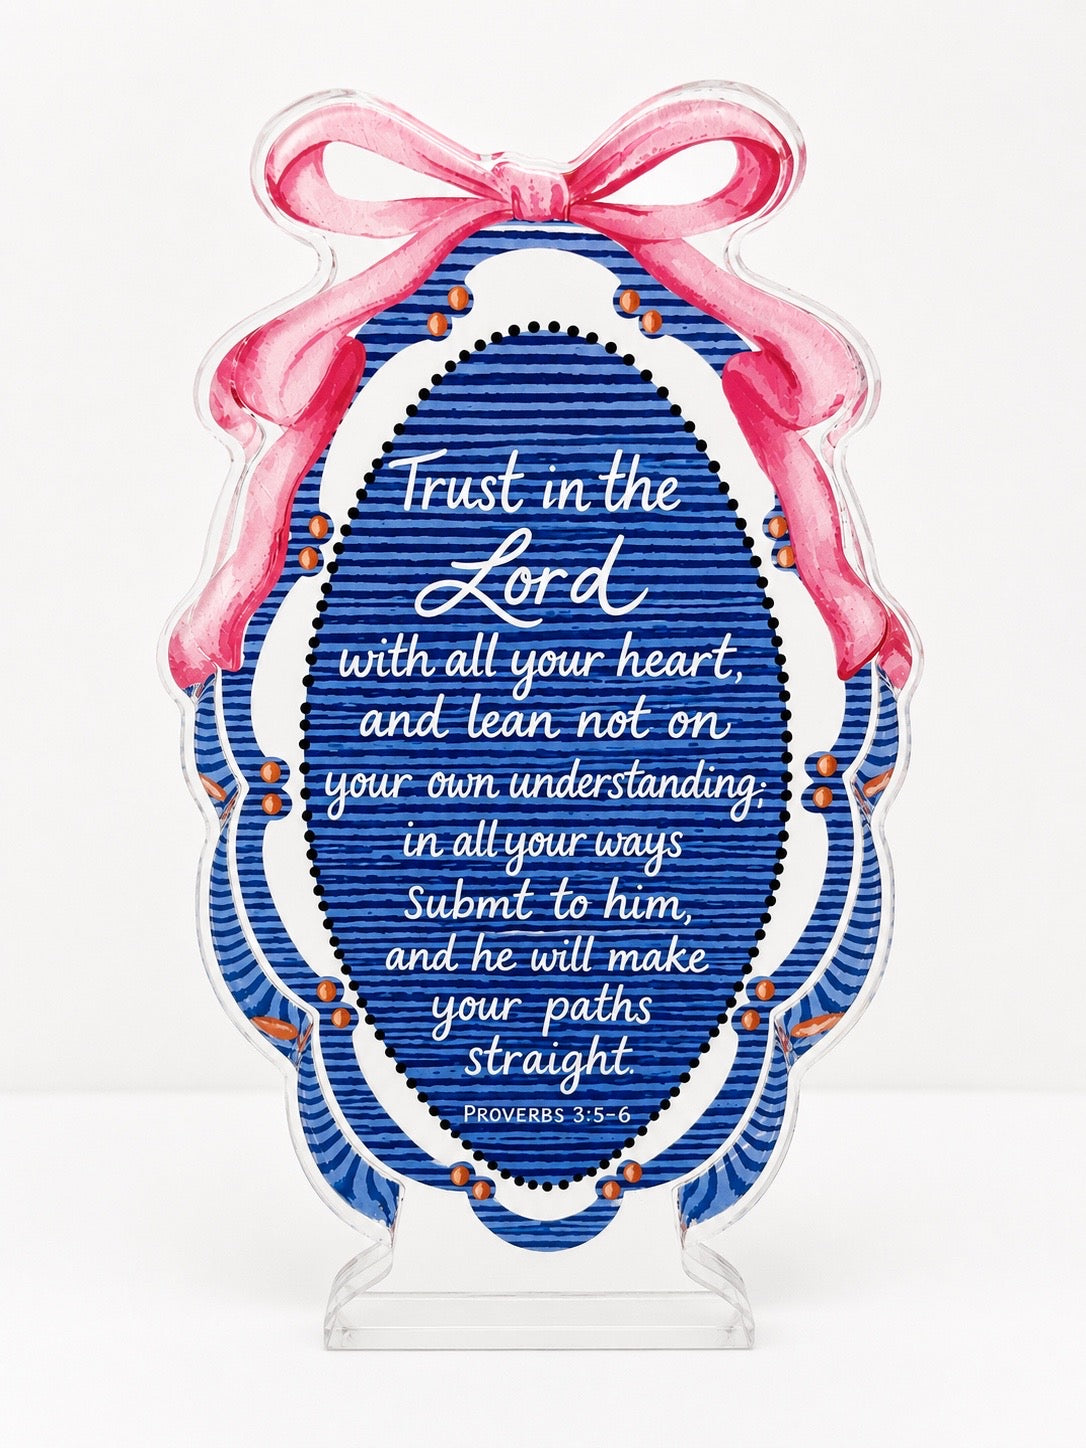 Trust in the
Lord
with all your heart,
and lean not on
your own understanding;
in all your ways
Submt to him,
and he will make
your paths
straight.
PROVERBS 3:5-6